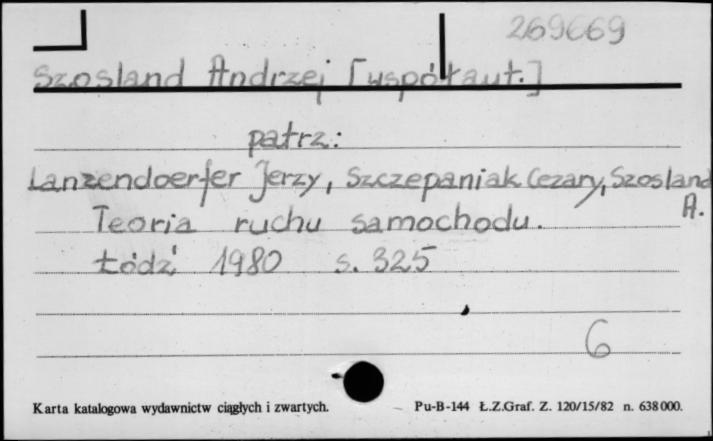 269669
Szosland Andrzej [współaut.]
patrz:
Lanzendoerfer Jerzy, Szczepaniak Cezary, Szosland
A.
Teoria ruchu samochodu.
Łódź 1980 s. 325
6
Karta katalogowa wydawnictw ciągłych i zwartych. Pu-B-144 Ł.Z.Graf. Z. 120/15/82 n. 638000.